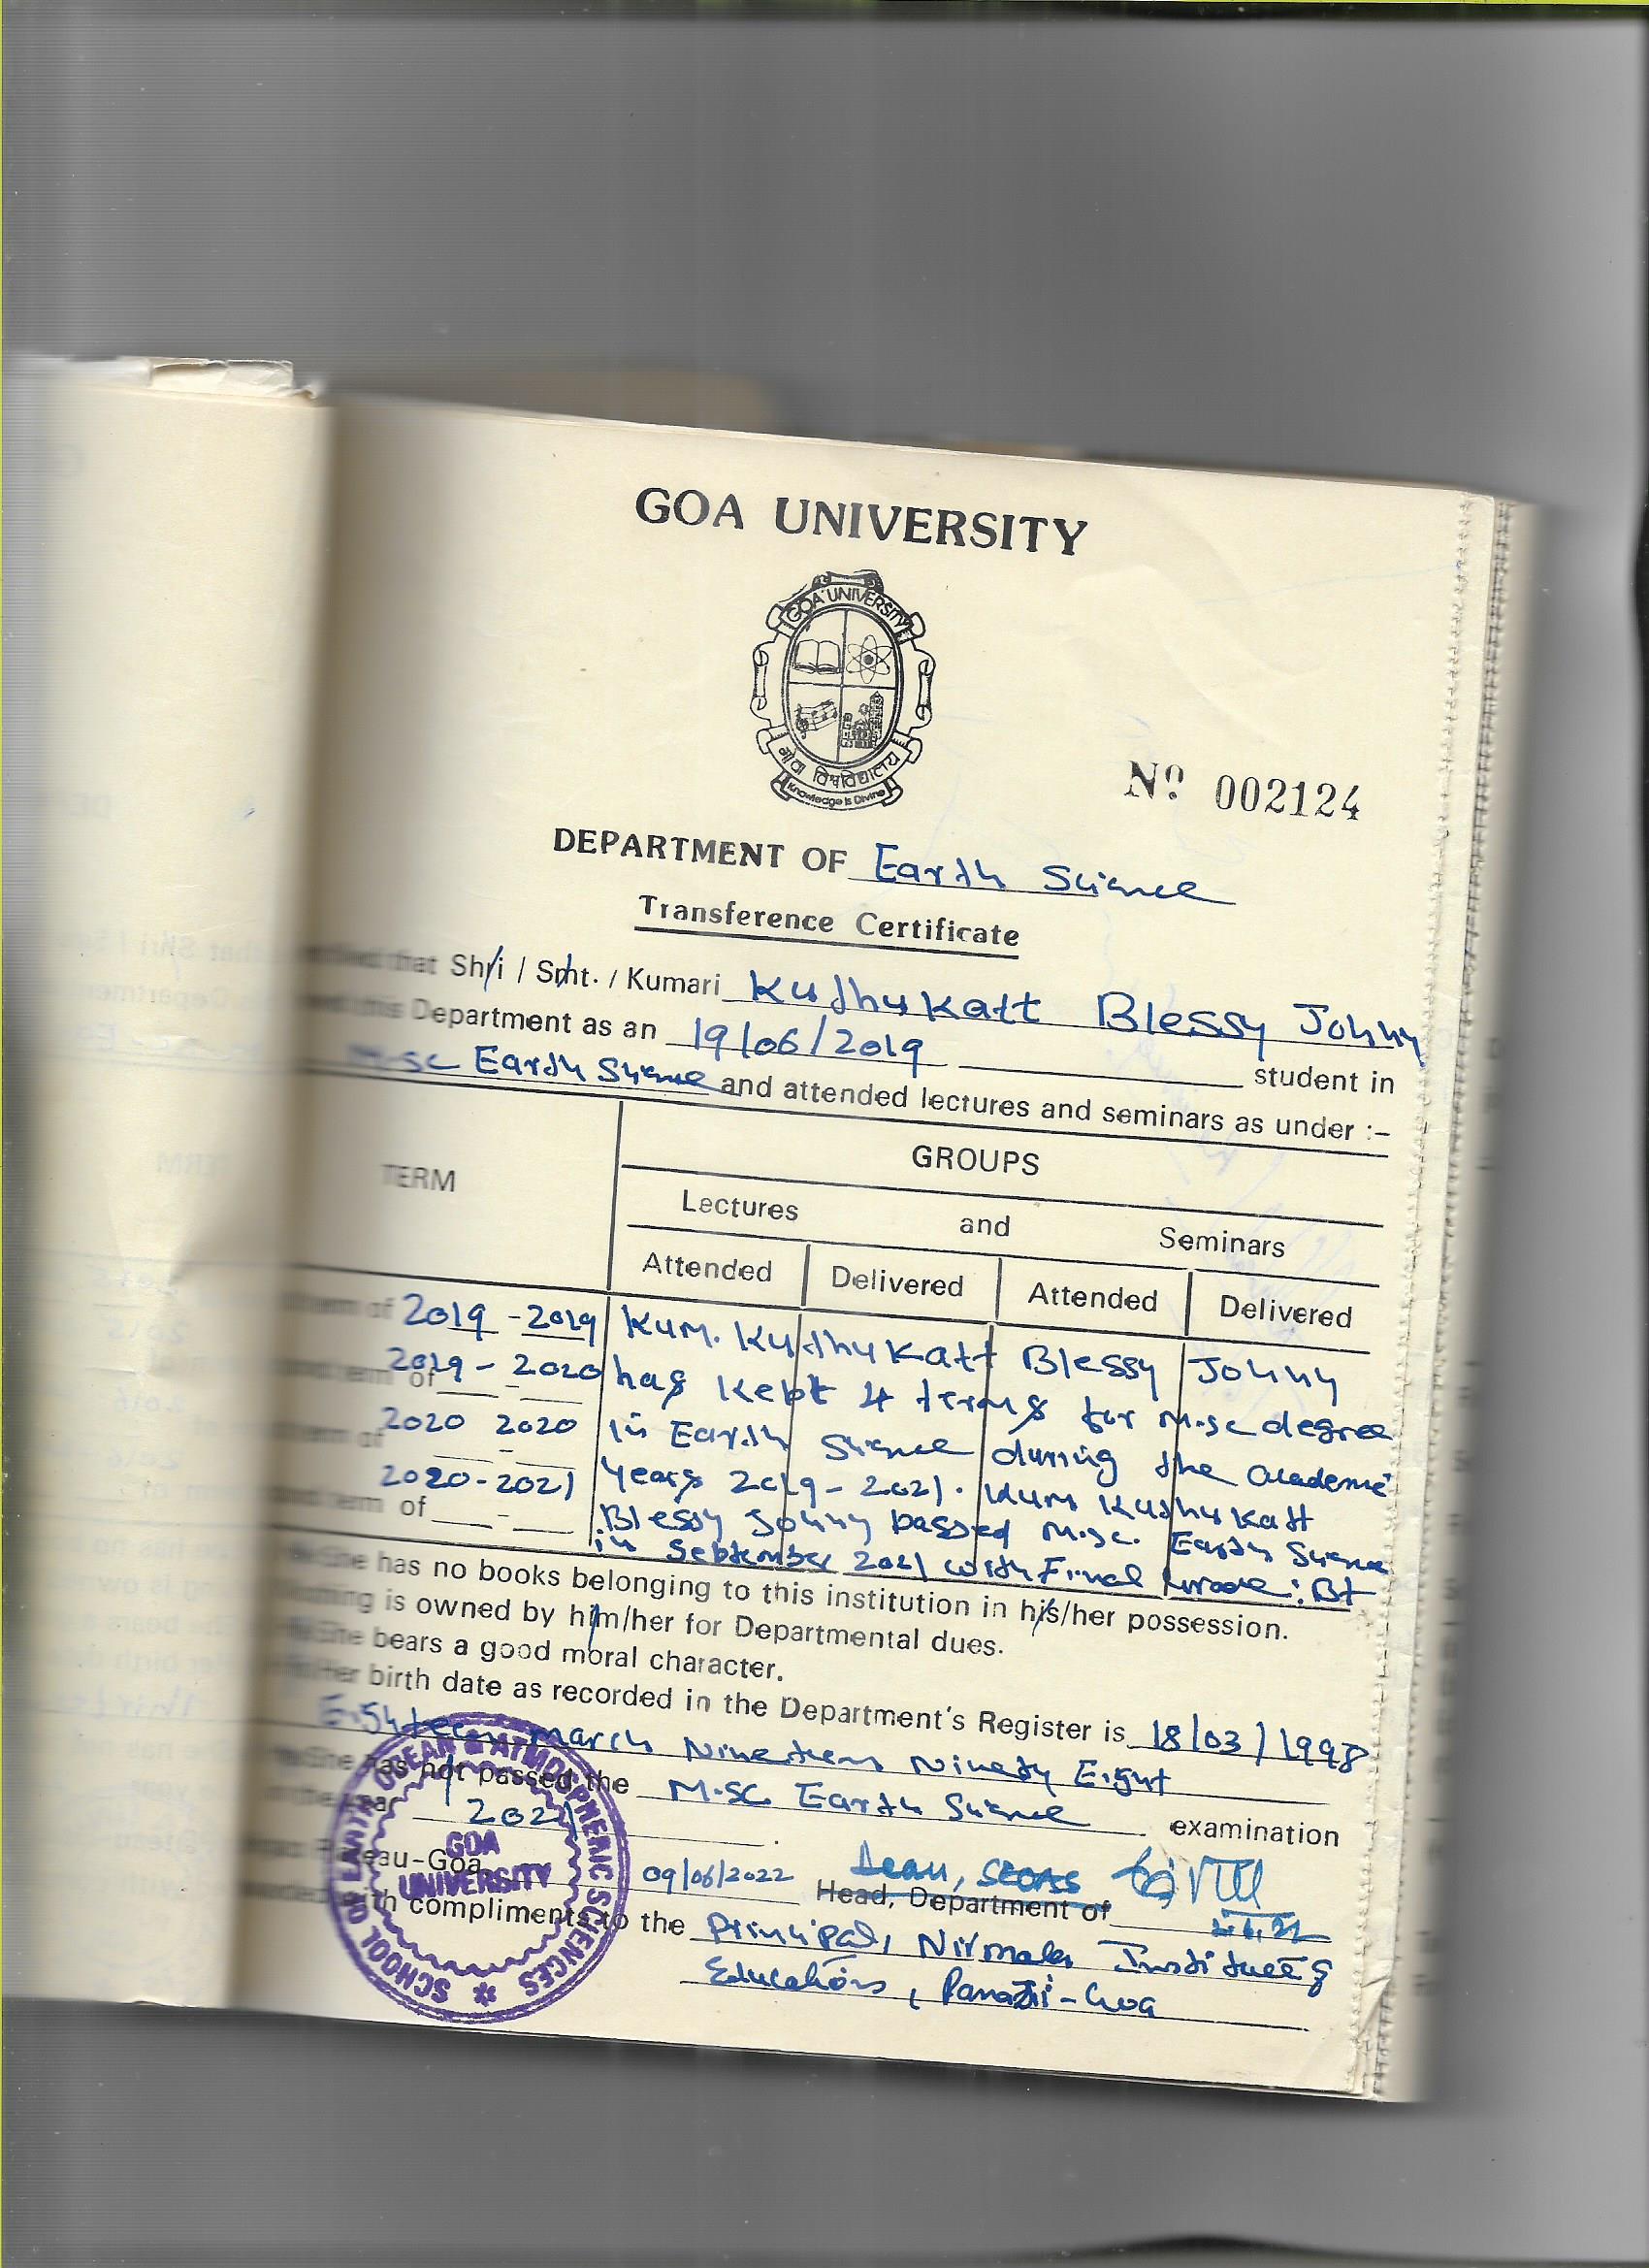 GOA UNIVERSITY
GOA UNIVERSITY
गोवा विश्वविद्यालय
Knowledge is Divine
Nº 002124
DEPARTMENT OF Earth Science
Transference Certificate
that Shri / Smt. / Kumari Kudhukatt Blessy Johny
this Department as an 19/06/2019 student in
M.sc Earth Science and attended lectures and seminars as under :-
TERM GROUPS
Lectures and Seminars
Attended Delivered Attended Delivered
term of 2019 - 2019 Kum. Kudhukatt Blessy Johny
term of 2019 - 2020 has kept 4 terms for M.sc degree
term of 2020 - 2020 in Earth Science during the academic
term of 2020-2021 years 2019-2021. Kum Kudhukatt
Blessy Johny passed M.sc. Earth Science
in September 2021 with Final Grade: B+
She has no books belonging to this institution in his/her possession.
is owned by him/her for Departmental dues.
She bears a good moral character.
her birth date as recorded in the Department's Register is 18/03/1998
Eighteen march Nineteen Ninety Eight
She has not passed the M.SC. Earth Science examination
in the year 2021.
Plateau-Goa 09/06/2022 Dean, SEOAS
Head, Department of
with compliments to the Principal, Nirmala Institute of
Education, Panaji-Goa
SCHOOL OF EARTH, OCEAN & ATMOSPHERIC SCIENCES
GOA
UNIVERSITY